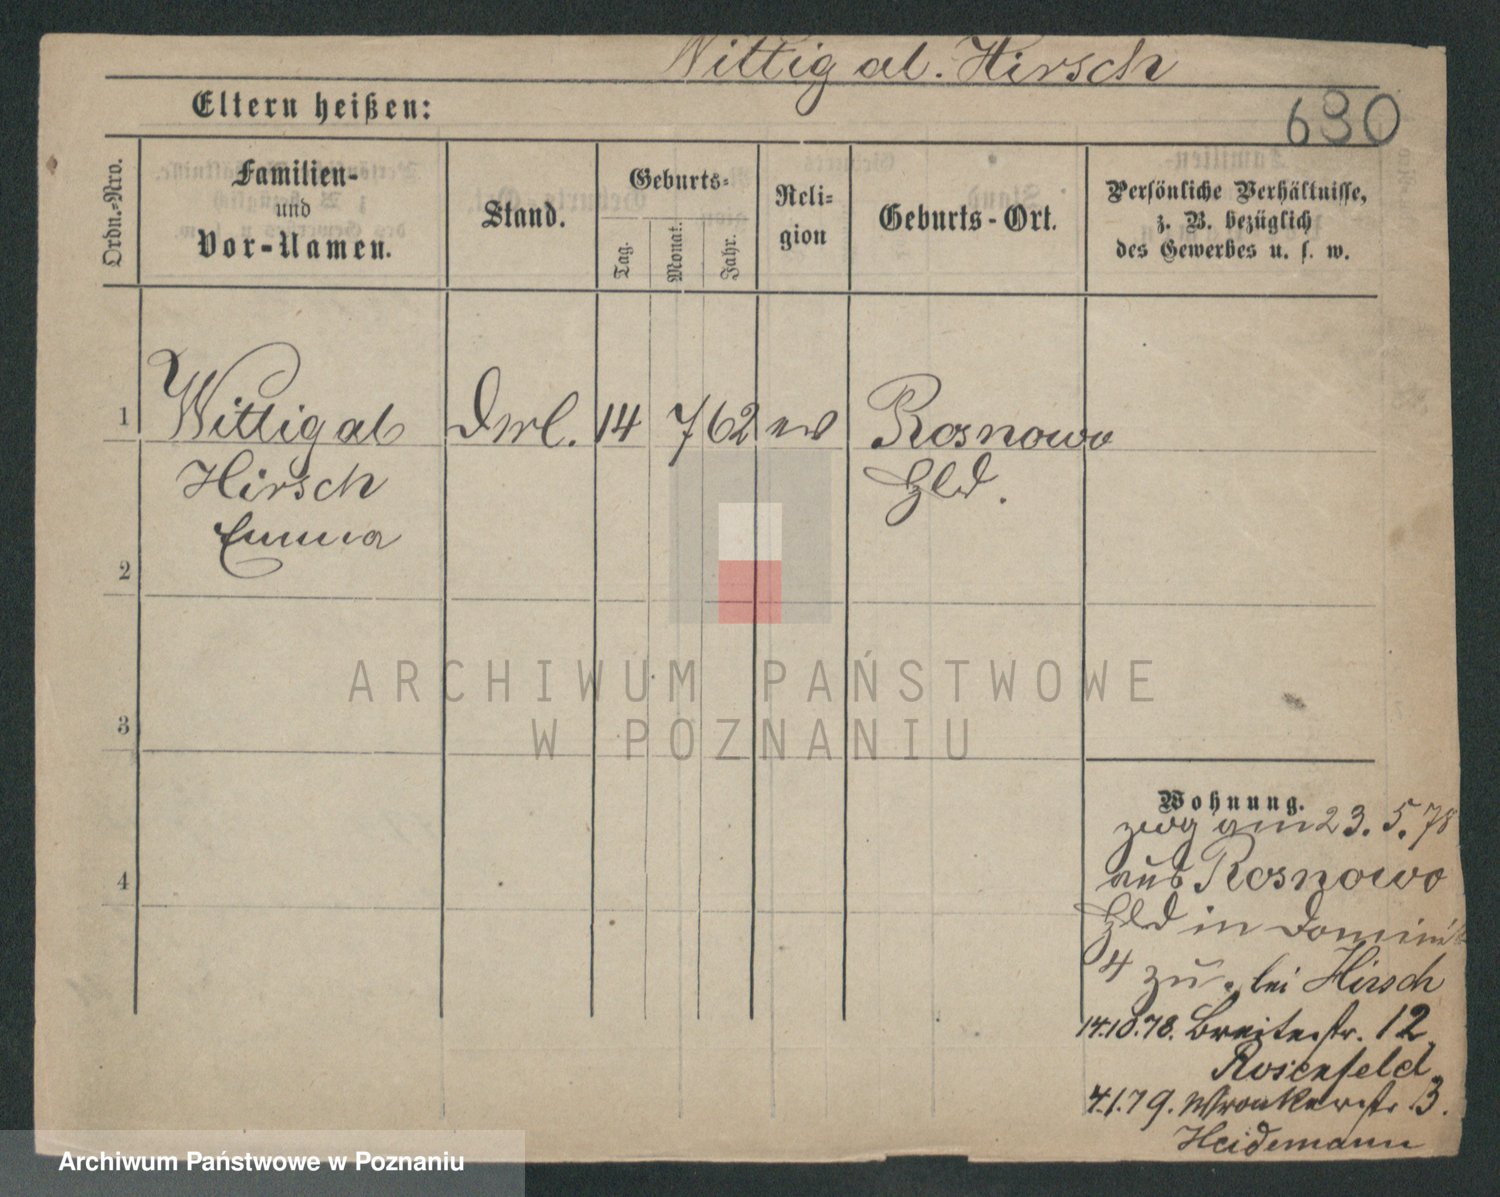 Wittig al. Hirsch
Eltern heißen:
630
Ordn.-Nro.
Familien-
und
Vor-Namen.
Stand.
Geburts-
Tag.
Monat.
Jahr.
Reli-
gion
Geburts-Ort.
Persönliche Verhältnisse,
z. B. bezüglich
des Gewerbes u. s. w.
1 Wittig al 14 7 62 ev Rosnowo
Hirsch Hld.
Emma
2
3
4
Wohnung.
zog am 23. 5. 78
aus Rosnowo
Hld in Dominik
4 zu. bei Hirsch
14.10.78. Breitestr. 12
Rosenfeld
4.1.79. Wronkerstr 13.
Heidemann
ARCHIWUM PAŃSTWOWE
W POZNANIU
Archiwum Państwowe w Poznaniu